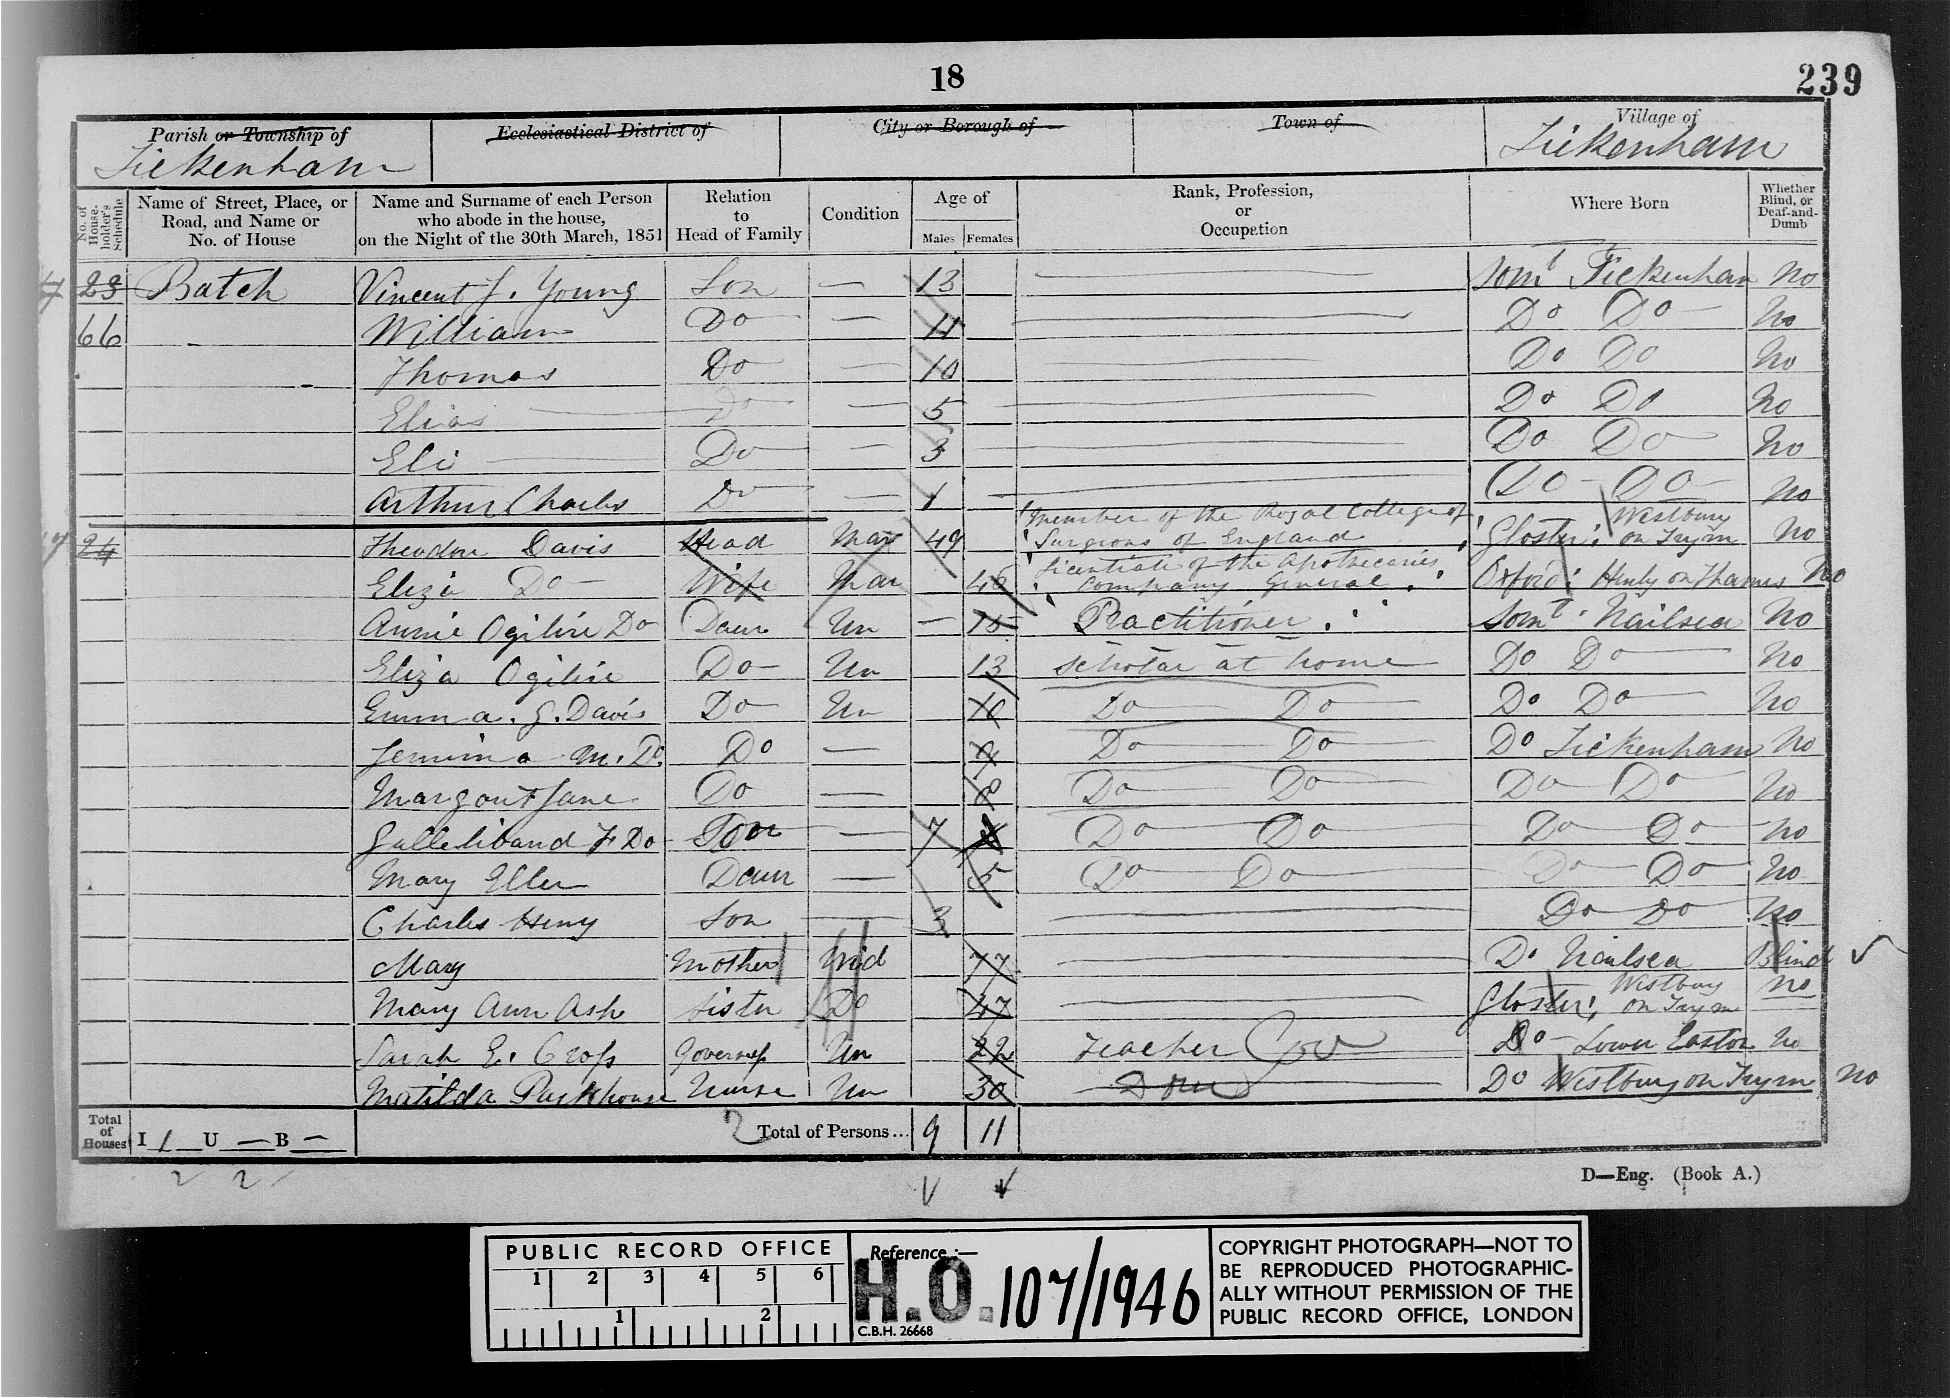 18
239
Parish or Township of
Tickenham
Ecclesiastical District of
City or Borough of
Town of
Village of
Tickenham
No. of House-holder's Schedule
Name of Street, Place, or Road, and Name or No. of House
Name and Surname of each Person who abode in the house, on the Night of the 30th March, 1851
Relation to Head of Family
Condition
Age of
Males Females
Rank, Profession, or Occupation
Where Born
Whether Blind, or Deaf-and-Dumb
23 Batch Vincent J. Young Son — 13 Somt Tickenham No
66 William Do — 11 Do Do No
Thomas Do — 10 Do Do No
Elias Do — 5 Do Do No
Eli Do — 3 Do Do No
Arthur Charles Do — 1 Do Do No
24 Theodore Davis Head Mar 49 Member of the Royal College of Surgeons of England Gloster: Westbury on Trym No
Eliza Do Wife Mar 46 Licentiate of the Apothecaries Company General Oxford: Henly on Thames No
Annie Ogilvie Do Daur Un — 15 Practitioner Somt Nailsea No
Eliza Ogilvie Do Un 13 Scholar at home Do Do No
Emma. G. Davis Do Un 10 Do Do Do Do No
Jemima M. Do Do — 9 Do Do Do Tickenham No
Margaret Jane Do — 8 Do Do Do Do No
F Do Son — 7 Do Do Do Do No
Mary Ellen Daur — 5 Do Do Do Do No
Charles Henry Son 3 Do Do No
Mary Mother Wid 77 Do Nailsea Blind
Mary Ann Ash Sister Do 47 Gloster: Westbury on Trym No
Sarah E. Cross Governess Un 22 Teacher Gov Do Lower Easton No
Matilda Parkhouse Nurse Un 30 Dom Do Westbury on Trym No
Total of Houses I 1 U — B —
2 Total of Persons... 9 11
2 2
D—Eng. (Book A.)
PUBLIC RECORD OFFICE
1 2 3 4 5 6
1 2
Reference :—
H.O. 107/1946
C.B.H. 26668
COPYRIGHT PHOTOGRAPH—NOT TO
BE REPRODUCED PHOTOGRAPHIC-
ALLY WITHOUT PERMISSION OF THE
PUBLIC RECORD OFFICE, LONDON